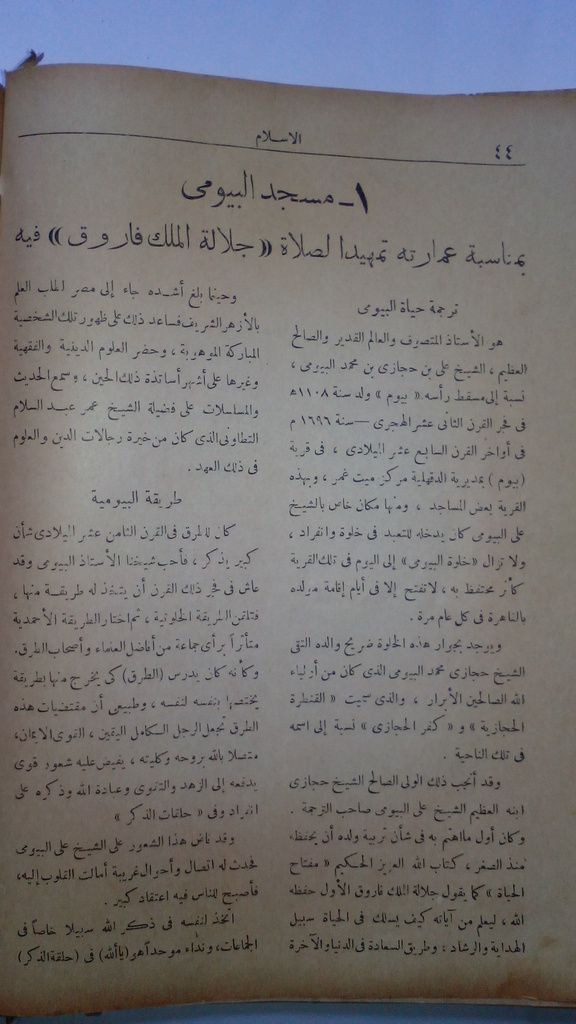 ٤٤
الاسلام
١ـ مسجد البيومى
بمناسبة عمارته تمهيدا لصلاة «جلالة الملك فاروق» فيه
ترجمة حياة البيومى
هو الأستاذ المتصوف والعالم القدير والصالح
العظيم ، الشيخ على بن حجازى بن محمد البيومى ،
نسبة إلى مسقط رأسه « بيوم » ولد سنة ١١٠٨ ه
فى فجر القرن الثانى عشر الهجرى — سنة ١٦٩٦ م
فى أواخر القرن السابع عشر الميلادى ، فى قرية
(بيوم ) بمديرية الدقهلية مركز ميت غمر ، وبهذه
القرية بعض المساجد ، ومنها مكان خاص بالشيخ
على البيومى كان يدخله للتعبد فى خلوة وانفراد ،
ولا تزال «خلوة البيومى» إلى اليوم فى تلك القرية
كأثر محتفظ به ، لاتفتح إلا فى أيام إقامة مولده
بالقاهرة فى كل عام مرة .
ويوجد بجوار هذه الخلوة ضريح والده التقى
الشيخ حجازى محمد البيومى الذى كان من أولياء
الله الصالحين الأبرار ، والذى سميت « القنطرة
الحجازية » و « كفر الحجازى » نسبة إلى اسمه
فى تلك الناحية .
وقد أنجب ذلك الولى الصالح الشيخ حجازى
ابنه العظيم الشيخ على البيومى صاحب الترجمة .
وكان أول ماأهتم به فى شأن تربية ولده أن يحفظه
منذ الصغر ، كتاب الله العزيز الحكيم « مفتاح
الحياة » كما يقول جلالة الملك فاروق الأول حفظه
الله ، ليعلم من آياته كيف يسلك فى الحياة سبيل
الهداية والرشاد ، وطريق السعادة فى الدنيا والآخرة
وحينما بلغ أشده جاء إلى مصر لطلب العلم
بالأزهر الشريف فساعد ذلك على ظهور تلك الشخصية
المباركة الموهوبة ، وحضر العلوم الدينية والفقهية
وغيرها على أشهر أساتذة ذلك الحين ، وسمع الحديث
والمسلسلات على فضيلة الشيخ عمر عبد السلام
التطاونى الذى كان من خيرة رجالات الدين والعلوم
فى ذلك العهد .
طريقة البيومية
كان للطرق فى القرن الثامن عشر الميلادى شأن
كبير يذكر ، فأحب شيخنا الأستاذ البيومى وقد
عاش فى فجر ذلك القرن أن يتخذ له طريقة منها ،
فتلقن الطريقة الخلوتية ، ثم اختار الطريقة الأحمدية
متأثراً برأى جماعة من أفاضل العلماء وأصحاب الطرق.
وكأنه كان يدرس (الطرق) كى يخرج منها بطريقة
يختصها بنفسه لنفسه ، وطبيعى أن مقتضيات هذه
الطرق تجعل الرجل الكامل اليقين ، القوى الايمان،
متصلا بالله بروحه وكليته ، يفيض عليه شعور قوى
يدفعه إلى الزهد والتقوى وعبادة الله وذكره على
انفراد وفى « حلقات الذكر »
وقد فاض هذا الشعور على الشيخ على البيومى
فحدث له اتصال وأحوال غريبة أمالت القلوب إليه،
فأصبح للناس فيه اعتقاد كبير .
اتخذ لنفسه فى ذكر الله سبيلا خاصاً فى
الجماعات، ونداء موحداً هو (ياألله) فى (حلقة الذكر)